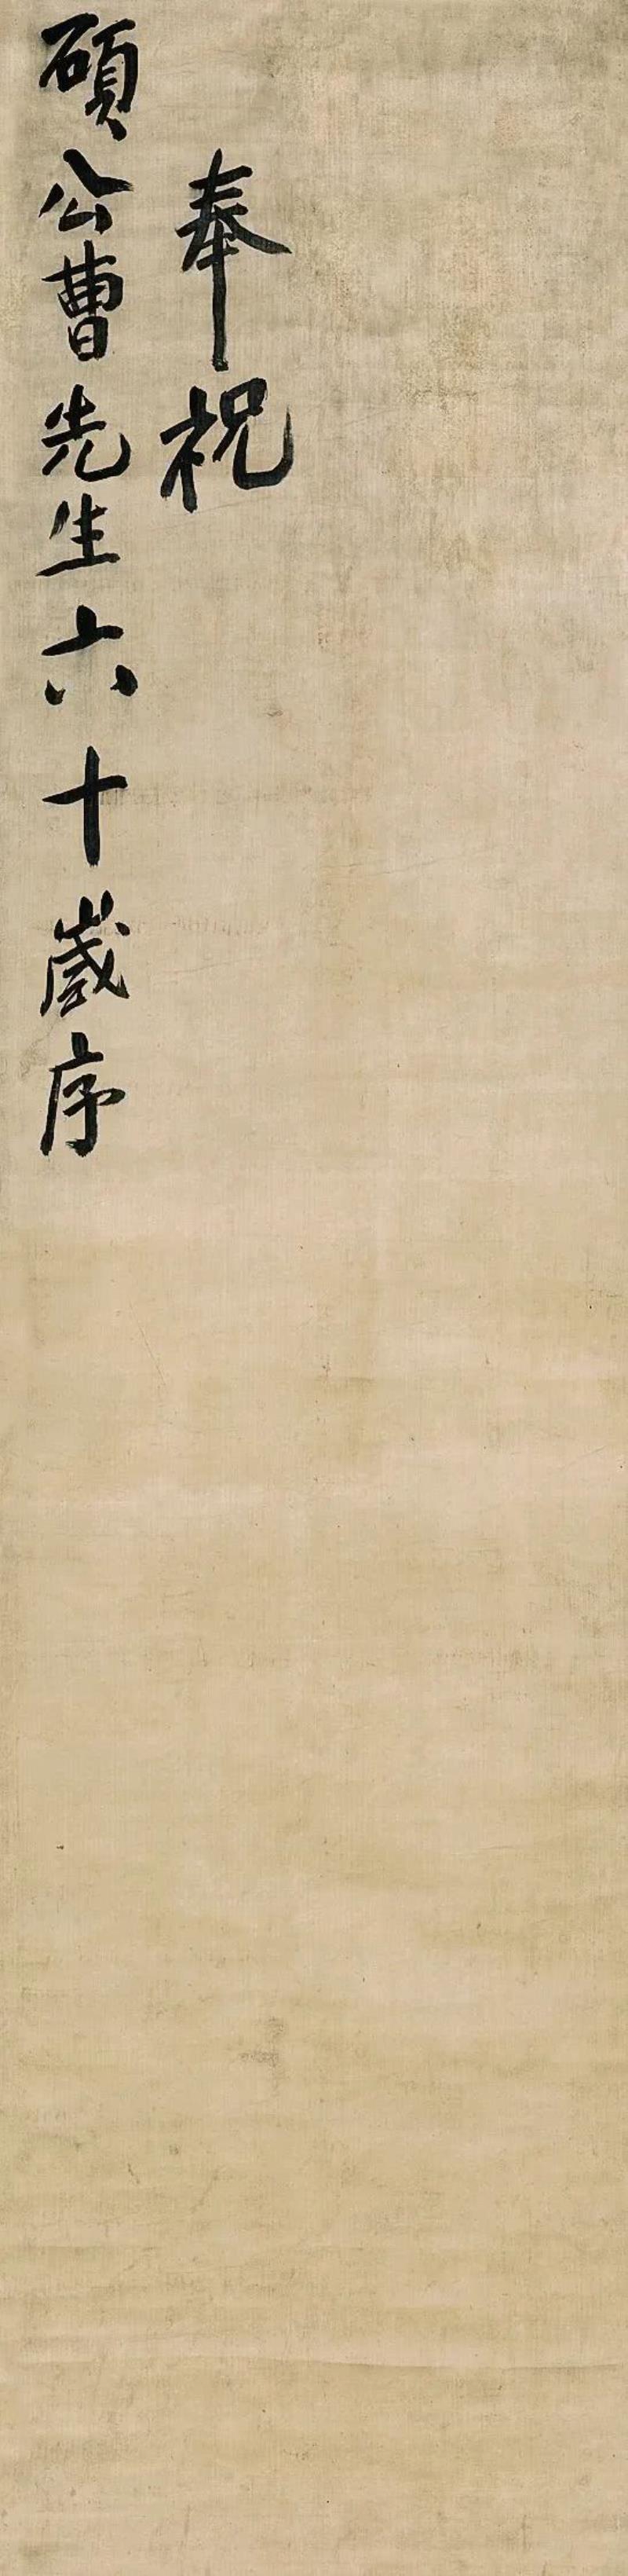 奉祝
碩公曹先生六十歲序